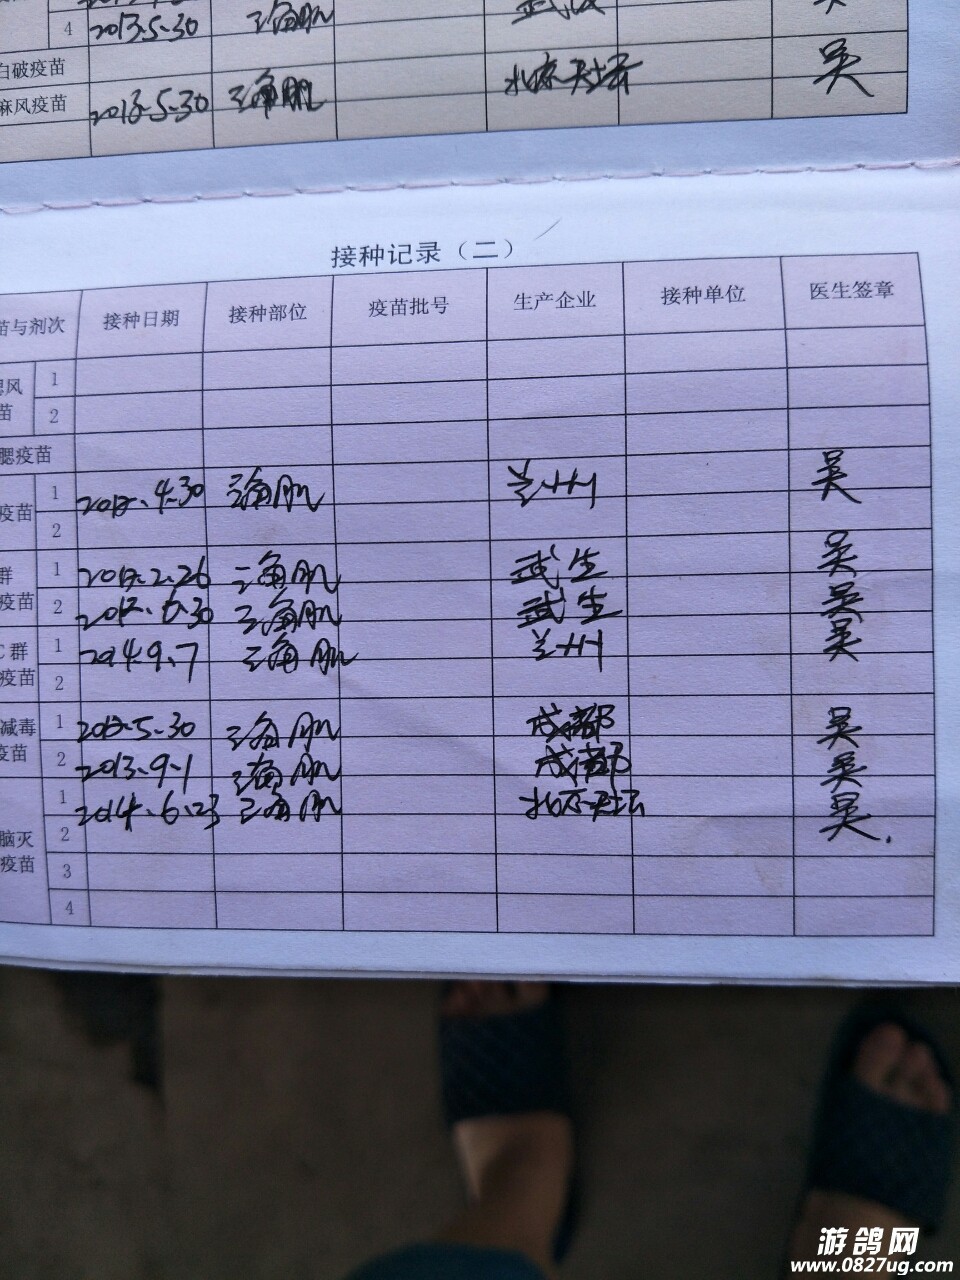 4 2013.5.30 三角肌 武汉
白破疫苗
麻风疫苗 2013.5.30 三角肌 北京天坛 吴
接种记录（二）
苗与剂次 接种日期 接种部位 疫苗批号 生产企业 接种单位 医生签章
风 1
苗 2
腮疫苗
疫苗 1 2012.4.30 三角肌 兰州 吴
2
群 1 2012.2.26 三角肌 武生 吴
疫苗 2 2012.6.30 三角肌 武生 吴
C群 1 2014.9.7 三角肌 兰州 吴
疫苗 2
减毒 1 2012.5.30 三角肌 成都 吴
疫苗 2 2013.9.1 三角肌 成都 吴
1 2014.6.23 三角肌 北京天坛 吴.
脑灭 2
疫苗 3
4
游鸽网
www.0827ug.com